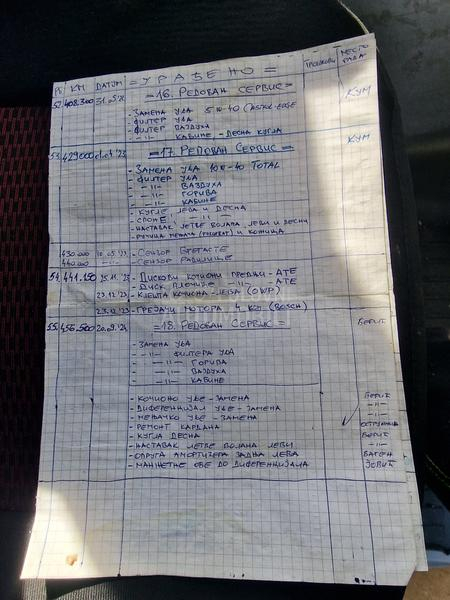 РБ КМ ДАТУМ =УРАЂЕНО= ТРОШКОВИ МЕСТО РАДА
52. 408.300 31.05. =16. РЕДОВАН СЕРВИС= КУМ
- ЗАМЕНА УЉА 5W-40 (CASTROL EDGE
- ФИЛТЕР УЉА
- ФИЛТЕР ВАЗДУХА
- -11- КАБИНЕ - ДЕСНА КУГЛА
53. 429000 '23 =17. РЕДОВАН СЕРВИС= КУМ
- ЗАМЕНА УЉА 10W-40 TOTAL
- ФИЛТЕР УЉА
- -11- ВАЗДУХА
- -11- ГОРИВА
- -11- КАБИНЕ
- КУГЛЕ ЛЕВА И ДЕСНА
- СПОНЕ -11-
- НАСТАВАК ЛЕТВЕ ВОЛАНА ЛЕВИ И ДЕСНИ
- РУЧИЦА МЕЊАЧА И КОЖИЦА
430.000 10.05.'23 - СЕНЗОР БРЕГАСТЕ
440.000 -11- - СЕНЗОР РАДИЛИЦЕ
54. 441.150 25.11.'23 - ДИСКОВИ КОЧИОНИ ПРЕДЊИ - ATE
- ДИСК ПЛОЧИЦЕ -11- - ATE
23.12.'23 - КЛЕШТА КОЧИОНА - ЛЕВА (QWP)
23.12.'23 - ГРЕЈАЧИ МОТОРА 4 КОМ (BOSCH)
55. 456.500 20.09.'24 =18. РЕДОВАН СЕРВИС= БЕРИЋ
- ЗАМЕНА УЉА
- -11- ФИЛТЕРА УЉА
- -11- ГОРИВА
- -11- ВАЗДУХА
- -11- КАБИНЕ
- КОЧИОНО УЉЕ - ЗАМЕНА БЕРИЋ
- ДИФЕРЕНЦИЈАЛ УЉЕ - ЗАМЕНА -11-
- МЕЊАЧКО УЉЕ - ЗАМЕНА -11-
- РЕМОНТ КАРДАНА
- КУГЛА ДЕСНА БЕРИЋ
- НАСТАВАК ЛЕТВЕ ВОЛАНА ЛЕВИ -11-
- ОПРУГА АМОРТИЗЕРА ЗАДЊА ЛЕВА
- МАНЖЕТНЕ ОБЕ ДО ДИФЕРЕНЦИЈАЛА ЈОВИЋ